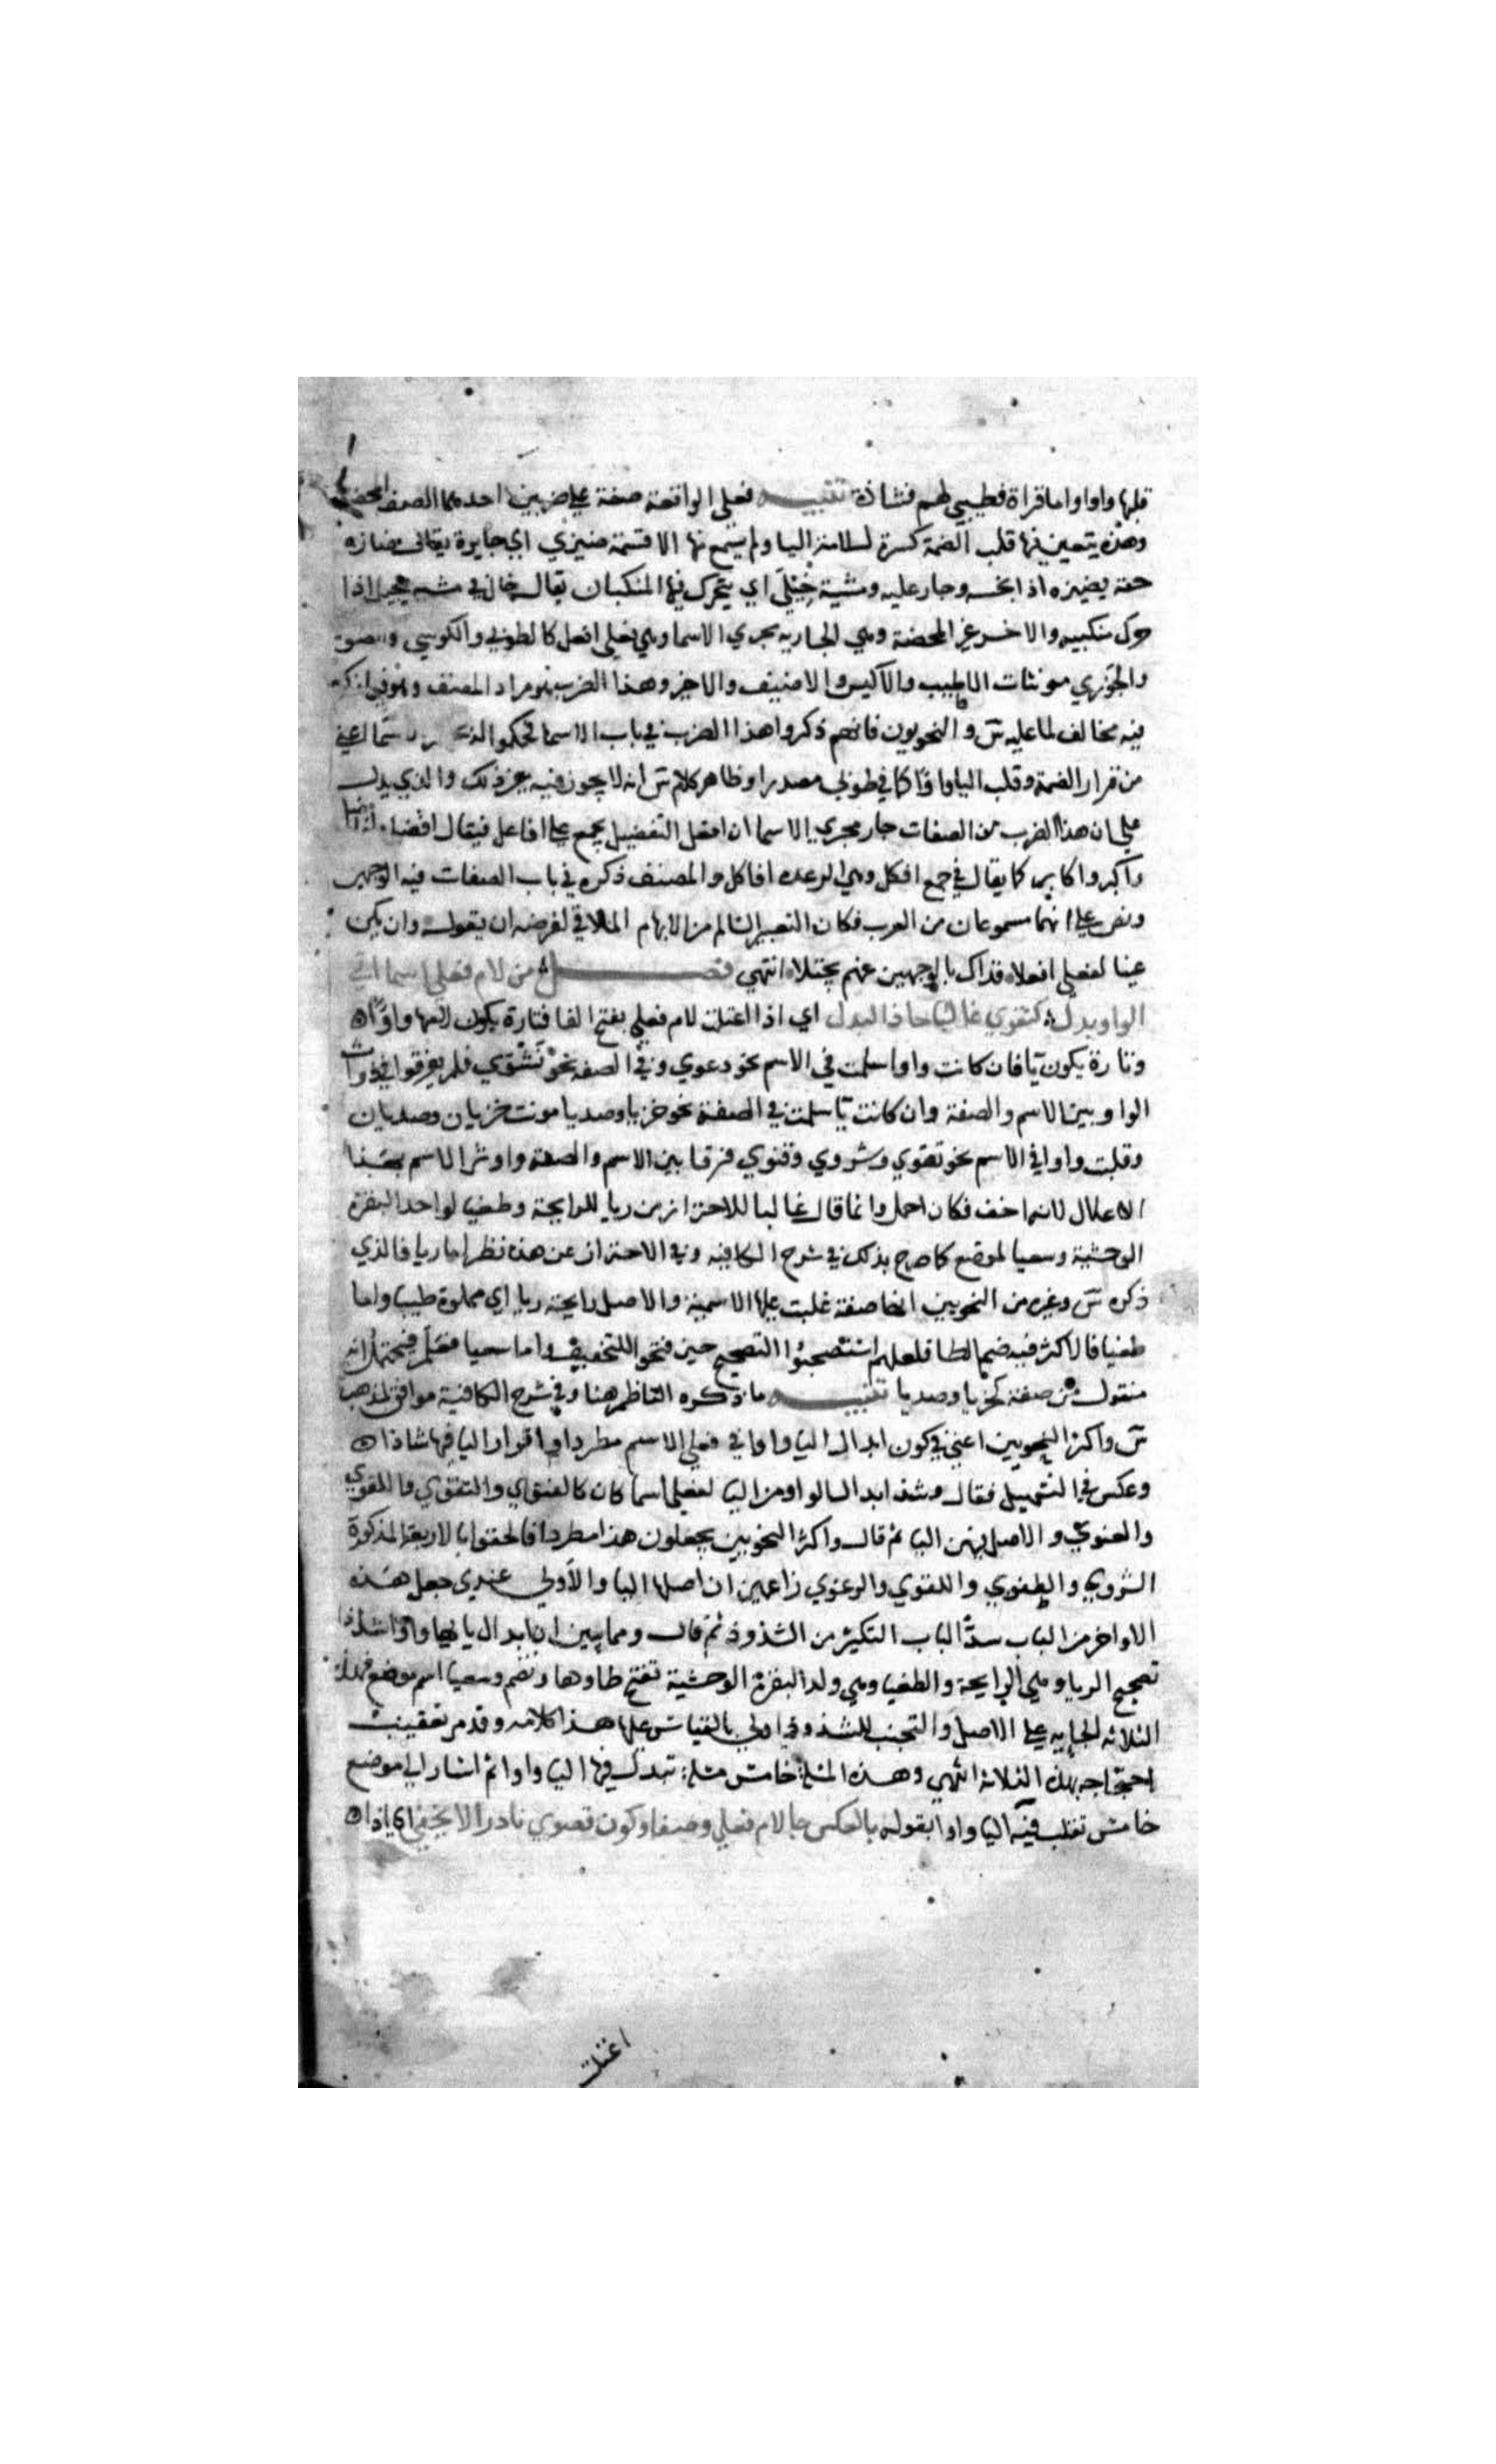 قلبها واوا واما قراة فطيبي لهم فشاذة تنبيه فعلي الواقعة صفة علي ضربين احدهما الصفة المحضة
وهذه يتعين فيها قلب الضمة كسرة لسلامة اليا ولم يسمع منها الا قسمة ضيزي اي جايرة يقال ضازه
حقه يضيزه اذا بخسه وجار عليه ومشية حيكي اي يتحرك فيها المنكبان يقال حاك في مشيه يحيك اذا
حرك منكبيه والاخر غير المحضة وهي الجارية مجري الاسما وهي فعلي افعل كالطوبي والكوسي والضوقي
والخوري مونثات الاطيب والاكيس والاضيق والاخير وهذا الضرب هو مراد المصنف وهو فيما ذكره
فيه مخالف لما عليه س والنحويون فانهم ذكروا هذا الضرب في باب الاسما فحكموا له بحكم الاسما اعني
من قرار الضمة وقلب اليا واوا كما في طوبي مصدرا وظاهر كلام س انه لا يجوز فيه غير ذلك والذي يدل
علي ان هذا الضرب من الصفات جار مجري الاسما ان افعل التفضيل يجمع علي افاعل فيقال افضل وافاضل
واكبر واكابر كما يقال في جمع افكل وهي الرعدة افاكل والمصنف ذكره في باب الصفات فيه الوجهين
ونص علي انهما مسموعان من العرب فكان التعبير السالم من الابهام الملاقي لغرضه ان يقول وان يكن
عينا لفعلي افعلا فذاك بالوجهين عنهم يجتلا انتهي فصل من لام فعلي اسما اتي
الواو بدل كتقوي غالبا جا ذا البدل اي اذا اعتلت لام فعلي بفتح الفا فتارة يكون لامها واوا
وتارة يكون يا فان كانت واوا سلمت في الاسم نحو دعوي وفي الصفة نحو نشوي فلم يفرقوا في ذوات
الواو بين الاسم والصفة وان كانت يا سلمت في الصفة نحو خزيا وصديا مونث خزيان وصديان
وقلبت واوا في الاسم نحو تقوي وشروي وفتوي فرقا بين الاسم والصفة واوثر الاسم بهذا
الاعلال لانه اخف فكان احمل وانما قال غالبا للاحتراز من ريا للرايحة وطغيا لولد البقرة
الوحشية وسعيا لموضع كما صرح بذلك في شرح الكافية وفي الاحتراز عن هذه نظر اما ريا فالذي
ذكره س وغيره من النحويين انها صفة غلبت عليها الاسمية والاصل رايحة ريا اي مملوة طيبا واما
طغيا فالاكثر فيه ضم الطا فلعلهم استصحبوا التصحيح حين فتحوا للتخفيف واما سعيا فعلم فيحتمل انه
منقول من صفة كخزيا وصديا تنبيه ما ذكره الناظم هنا وفي شرح الكافية موافق لمذهب
س واكثر النحويين اعني في كون ابدال اليا واوا في فعلي الاسم مطردا واقرار اليا فيها شاذا
وعكس في التسهيل فقال وشذ ابدال الواو من اليا لفعلي اسما كان كالفتوي والتقوي واللقوي
والعنوي والاصل فيهن اليا ثم قال واكثر النحويين يجعلون هذا مطردا فالحقوا بالاربعة المذكورة
الشروي والطغوي واللقوي والرعوي زاعمين ان اصلها اليا والاولي عندي جعل هذه
الاواخر من الباب سدا لباب التكثير من الشذوذ ثم قال ومما يبين ان ابدال يايها واوا شاذ
تصحيح الريا وهي الرايحة والطغيا وهي ولد البقرة الوحشية تفتح طاوها وتضم وسعيا اسم موضع فهذه
الثلاثة الجاية علي الاصل والتجنب للشذوذ اولي بالقياس عليها هذا كلامه وقد مر تعقيب
احتجاجه بهذه الثلاثة انتهي وهذه المسلة خامس مسلة تبدل فيها اليا واوا ثم اشار الي موضع
خامس تقلب فيه اليا واوا بقوله بالعكس جا لام فعلي وصفا وكون قصوي نادرا لا يخفي اي اذا
اعتلت